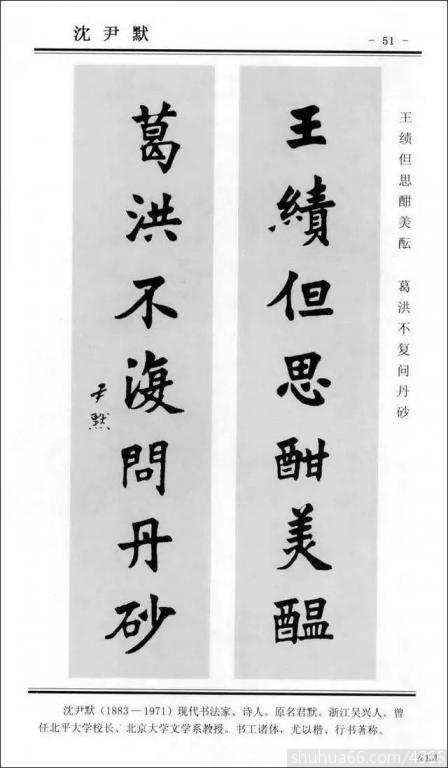 沈尹默
- 51 -
王绩但思酣美酝　葛洪不复问丹砂
王績但思酣美醖
葛洪不復問丹砂
尹默
沈尹默（1883—1971）现代书法家、诗人。原名君默。浙江吴兴人。曾
任北平大学校长、北京大学文学系教授。书工诸体，尤以楷、行书著称。
shuhua66.com